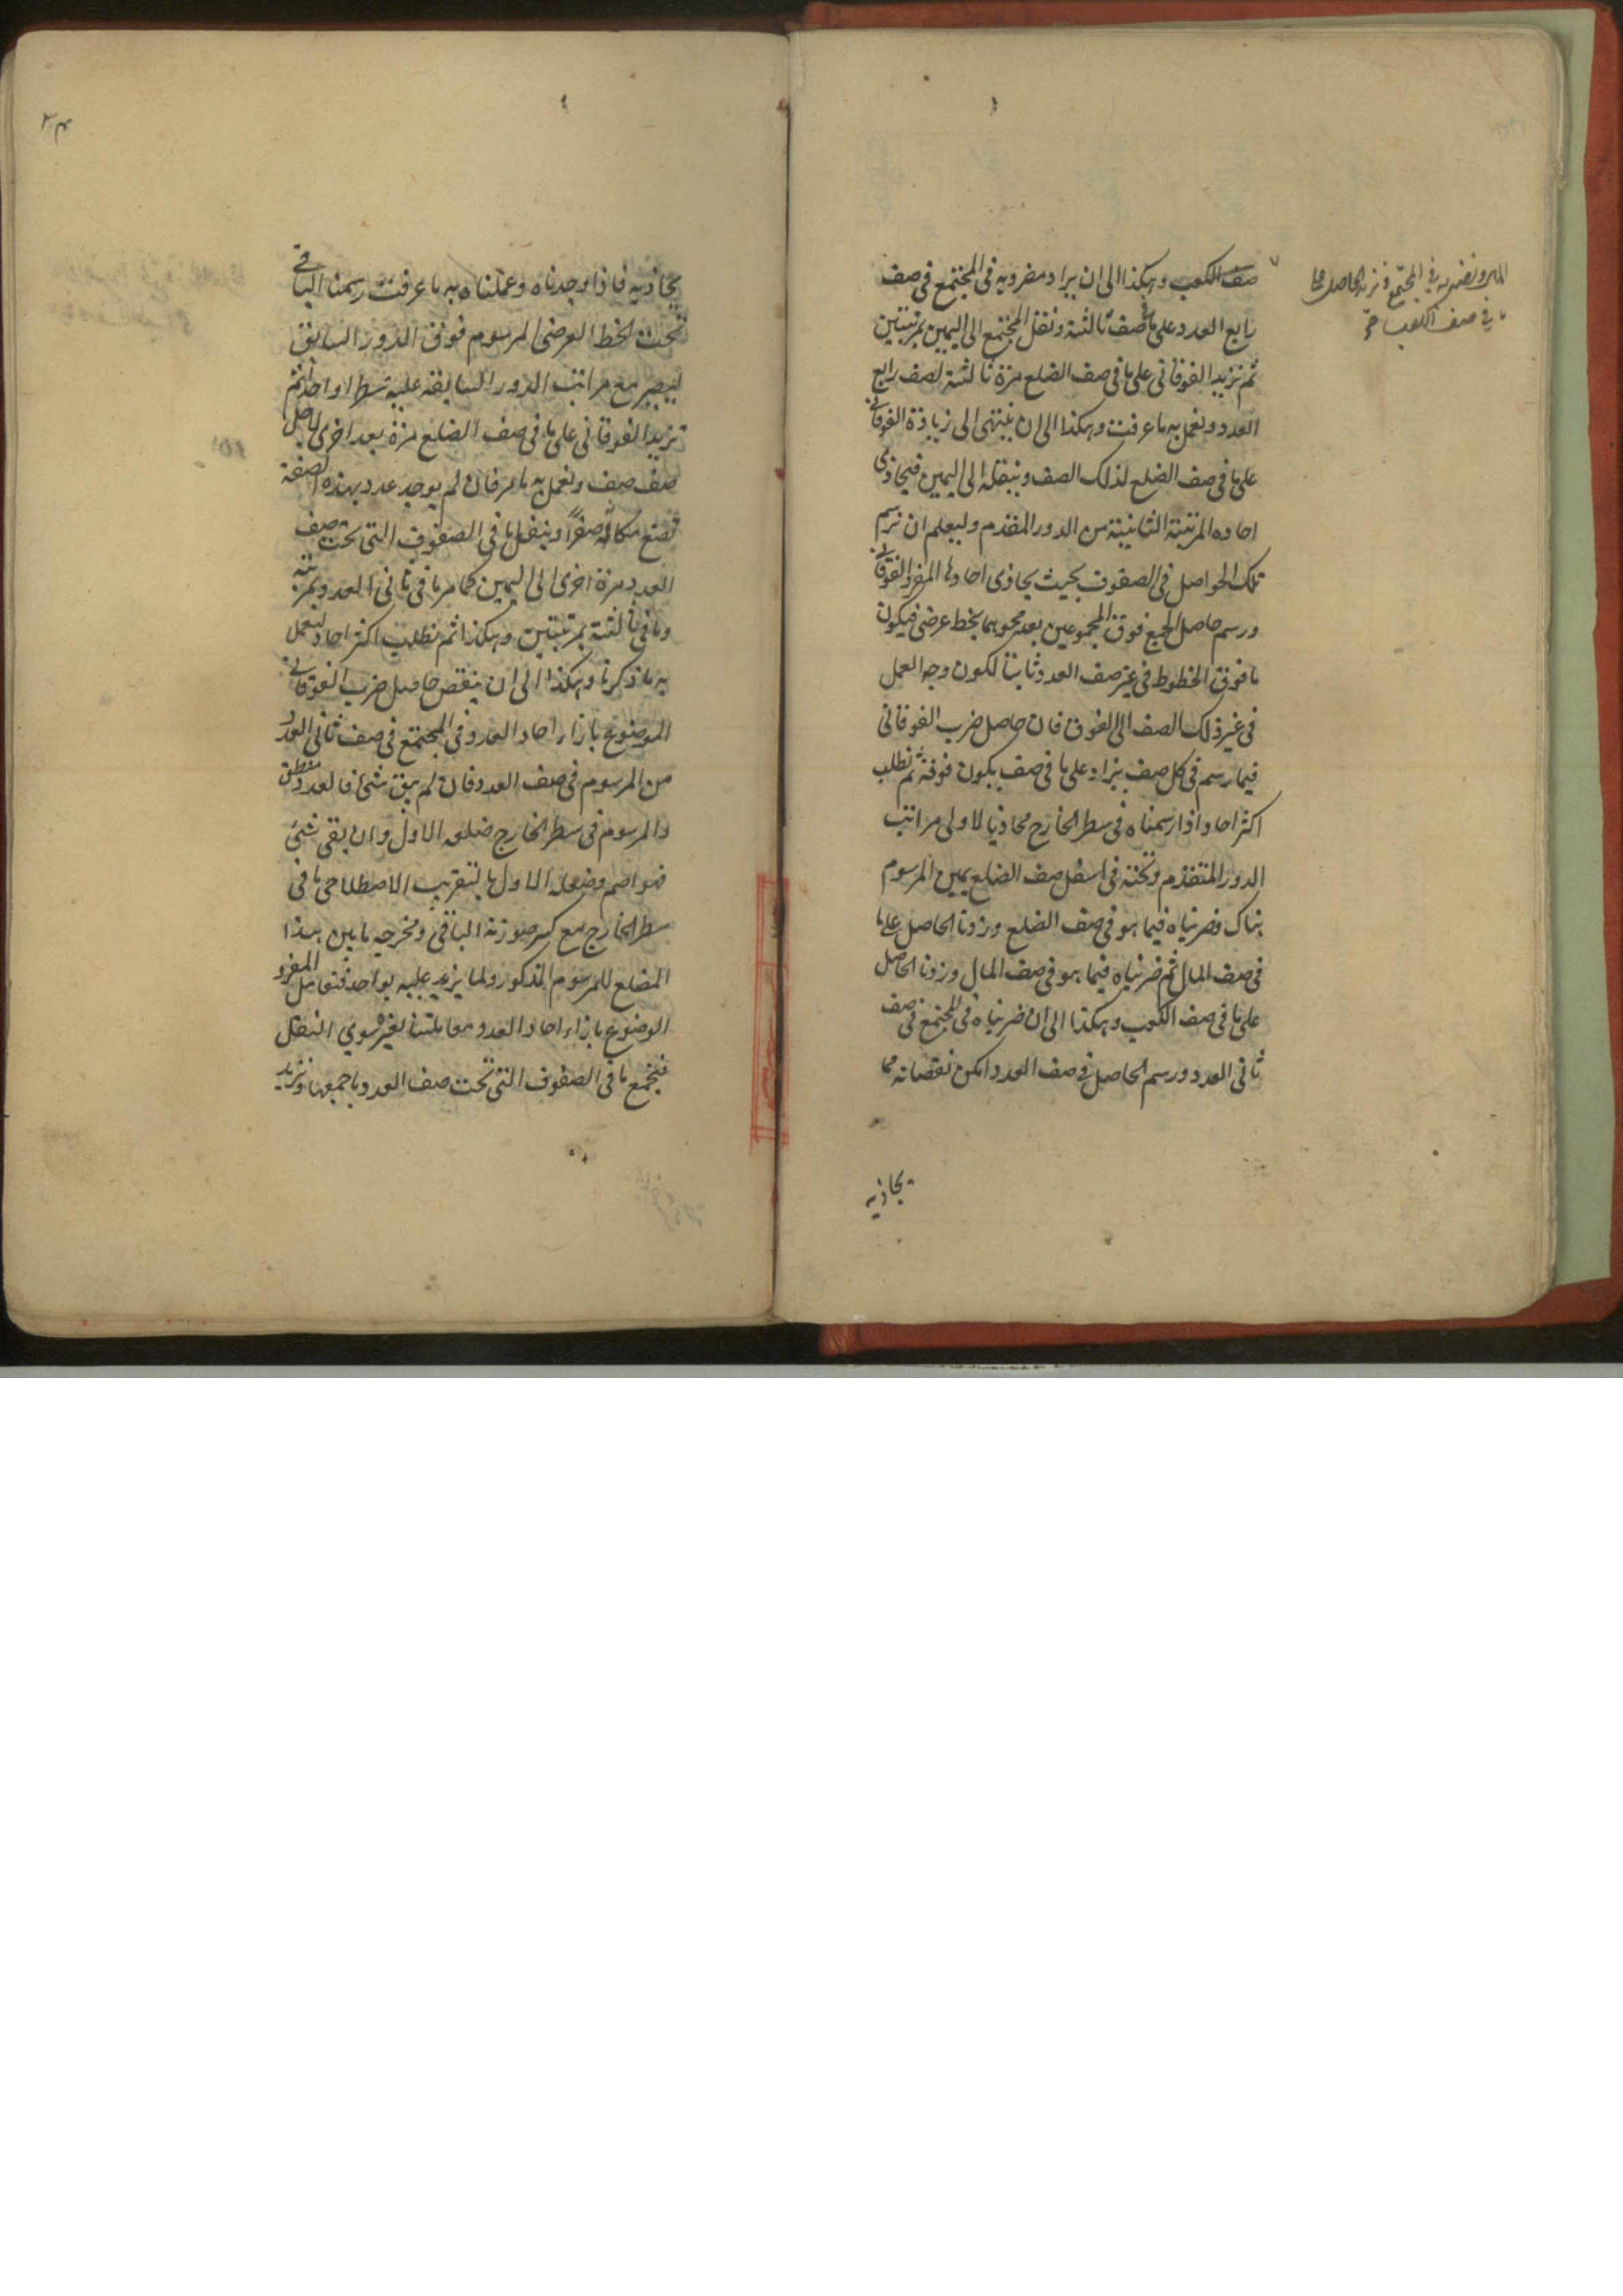 صف الكعب وهكذا الى ان يزاد مضروبه فى المجتمع فى صف
رابع العدد على ما فى صف ثالثة وننقل المجتمع الى اليمين بمرتبتين
ثم نزيد الفوقانى على ما فى صف الضلع مرة ثالثة لصف رابع
العدد ونعمل به ما عرفت وهكذا الى ان ينتهى الى زيادة الفوقانى
على ما فى صف الضلع لذلك الصف وننقله الى اليمين فيحاذى
احاده المرتبة الثانية من الدور المقدم وليعلم ان نرسم
تلك الحواصل فى الصفوف بحيث يحاذى احادها المفرد الفوقانى
ورسم حاصل الجمع فوق المجموعين بعد محوهما بخط عرضى فيكون
ما فوق الخطوط فى غير صف العدد ثابتا لكون وجه العمل
فى غير ذلك الصف الى الفوق فان حاصل ضرب الفوقانى
فيما رسم فى كل صف يزاد على ما فى صف يكون فوقه ثم نطلب
اكثر احاد اذا رسمناه فى سطر الخارج محاذيا لاولى مراتب
الدور المتقدم وتحته فى اسفل صف الضلع يمين المرسوم
هناك وضربناه فيما هو فى صف الضلع وزدنا الحاصل على ما
فى صف المال ثم ضربناه فيما هو فى صف المال وزدنا الحاصل
على ما فى صف الكعب وهكذا الى ان ضربناه فى المجتمع فى صف
ثانى العدد ورسم الحاصل فى صف العدد امكن نقصانه مما
يحاذيه
المجتمع ونزيد الحاصل على
ما فى صف الكعب صح
٣٤
يحاذيه فاذا وجدناه وعملناه به ما عرفت رسمنا الباقى
تحت الخط العرضى المرسوم فوق الدور السابق
ليصير مع مراتب الدور السابقة عليه سطرا واحدا ثم
نزيد الفوقانى على ما فى صف الضلع مرة بعد اخرى لاجل
صف صف ونعمل به ما مر فان لم يوجد عدد بهذه الصفة
نضع مكانه صفرا وننقل ما فى الصفوف التى تحت صف
العدد مرة اخرى الى اليمين كما مر ما فى ثانى العدد بمرتبة
وما فى ثالثة بمرتبتين وهكذا ثم نطلب اكثر احاد ليعمل
به ما ذكرنا وهكذا الى ان ينقص حاصل ضرب الفوقانى
الموضوع بازاء احاد العدد فى المجتمع فى صف ثانى العدد
من المرسوم فى صف العدد فان لم يبق شئ فالعدد منطق
والمرسوم فى سطر الخارج ضلعه الاول وان بقى شئ
فهو اصم وضلعه الاول بالتقريب الاصطلاحى ما فى
سطر الخارج مع كسر صورته الباقى ومخرجه ما بين هذا
المضلع للمرسوم المذكور ولما يزيد عليه بواحد فنعامل المفرد
الموضوع بازاء احاد العدد معاملتنا لغيره سوى النقل
فيجمع ما فى الصفوف التى تحت صف العدد باجمعها ونزيد